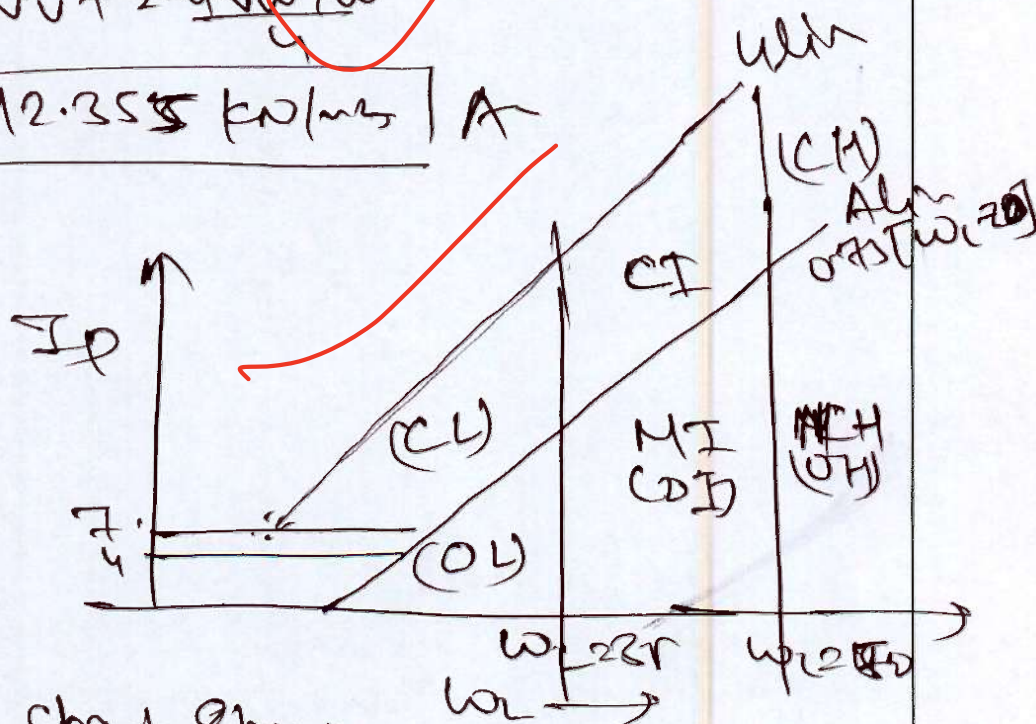 4
12.355 kN/m3 A
U line
(CH)
A line
0.73[WL-20]
CI
Ip
(CL)
MI
(OI)
MH
(OH)
7
4
(OL)
WL=35
WL=50
WL